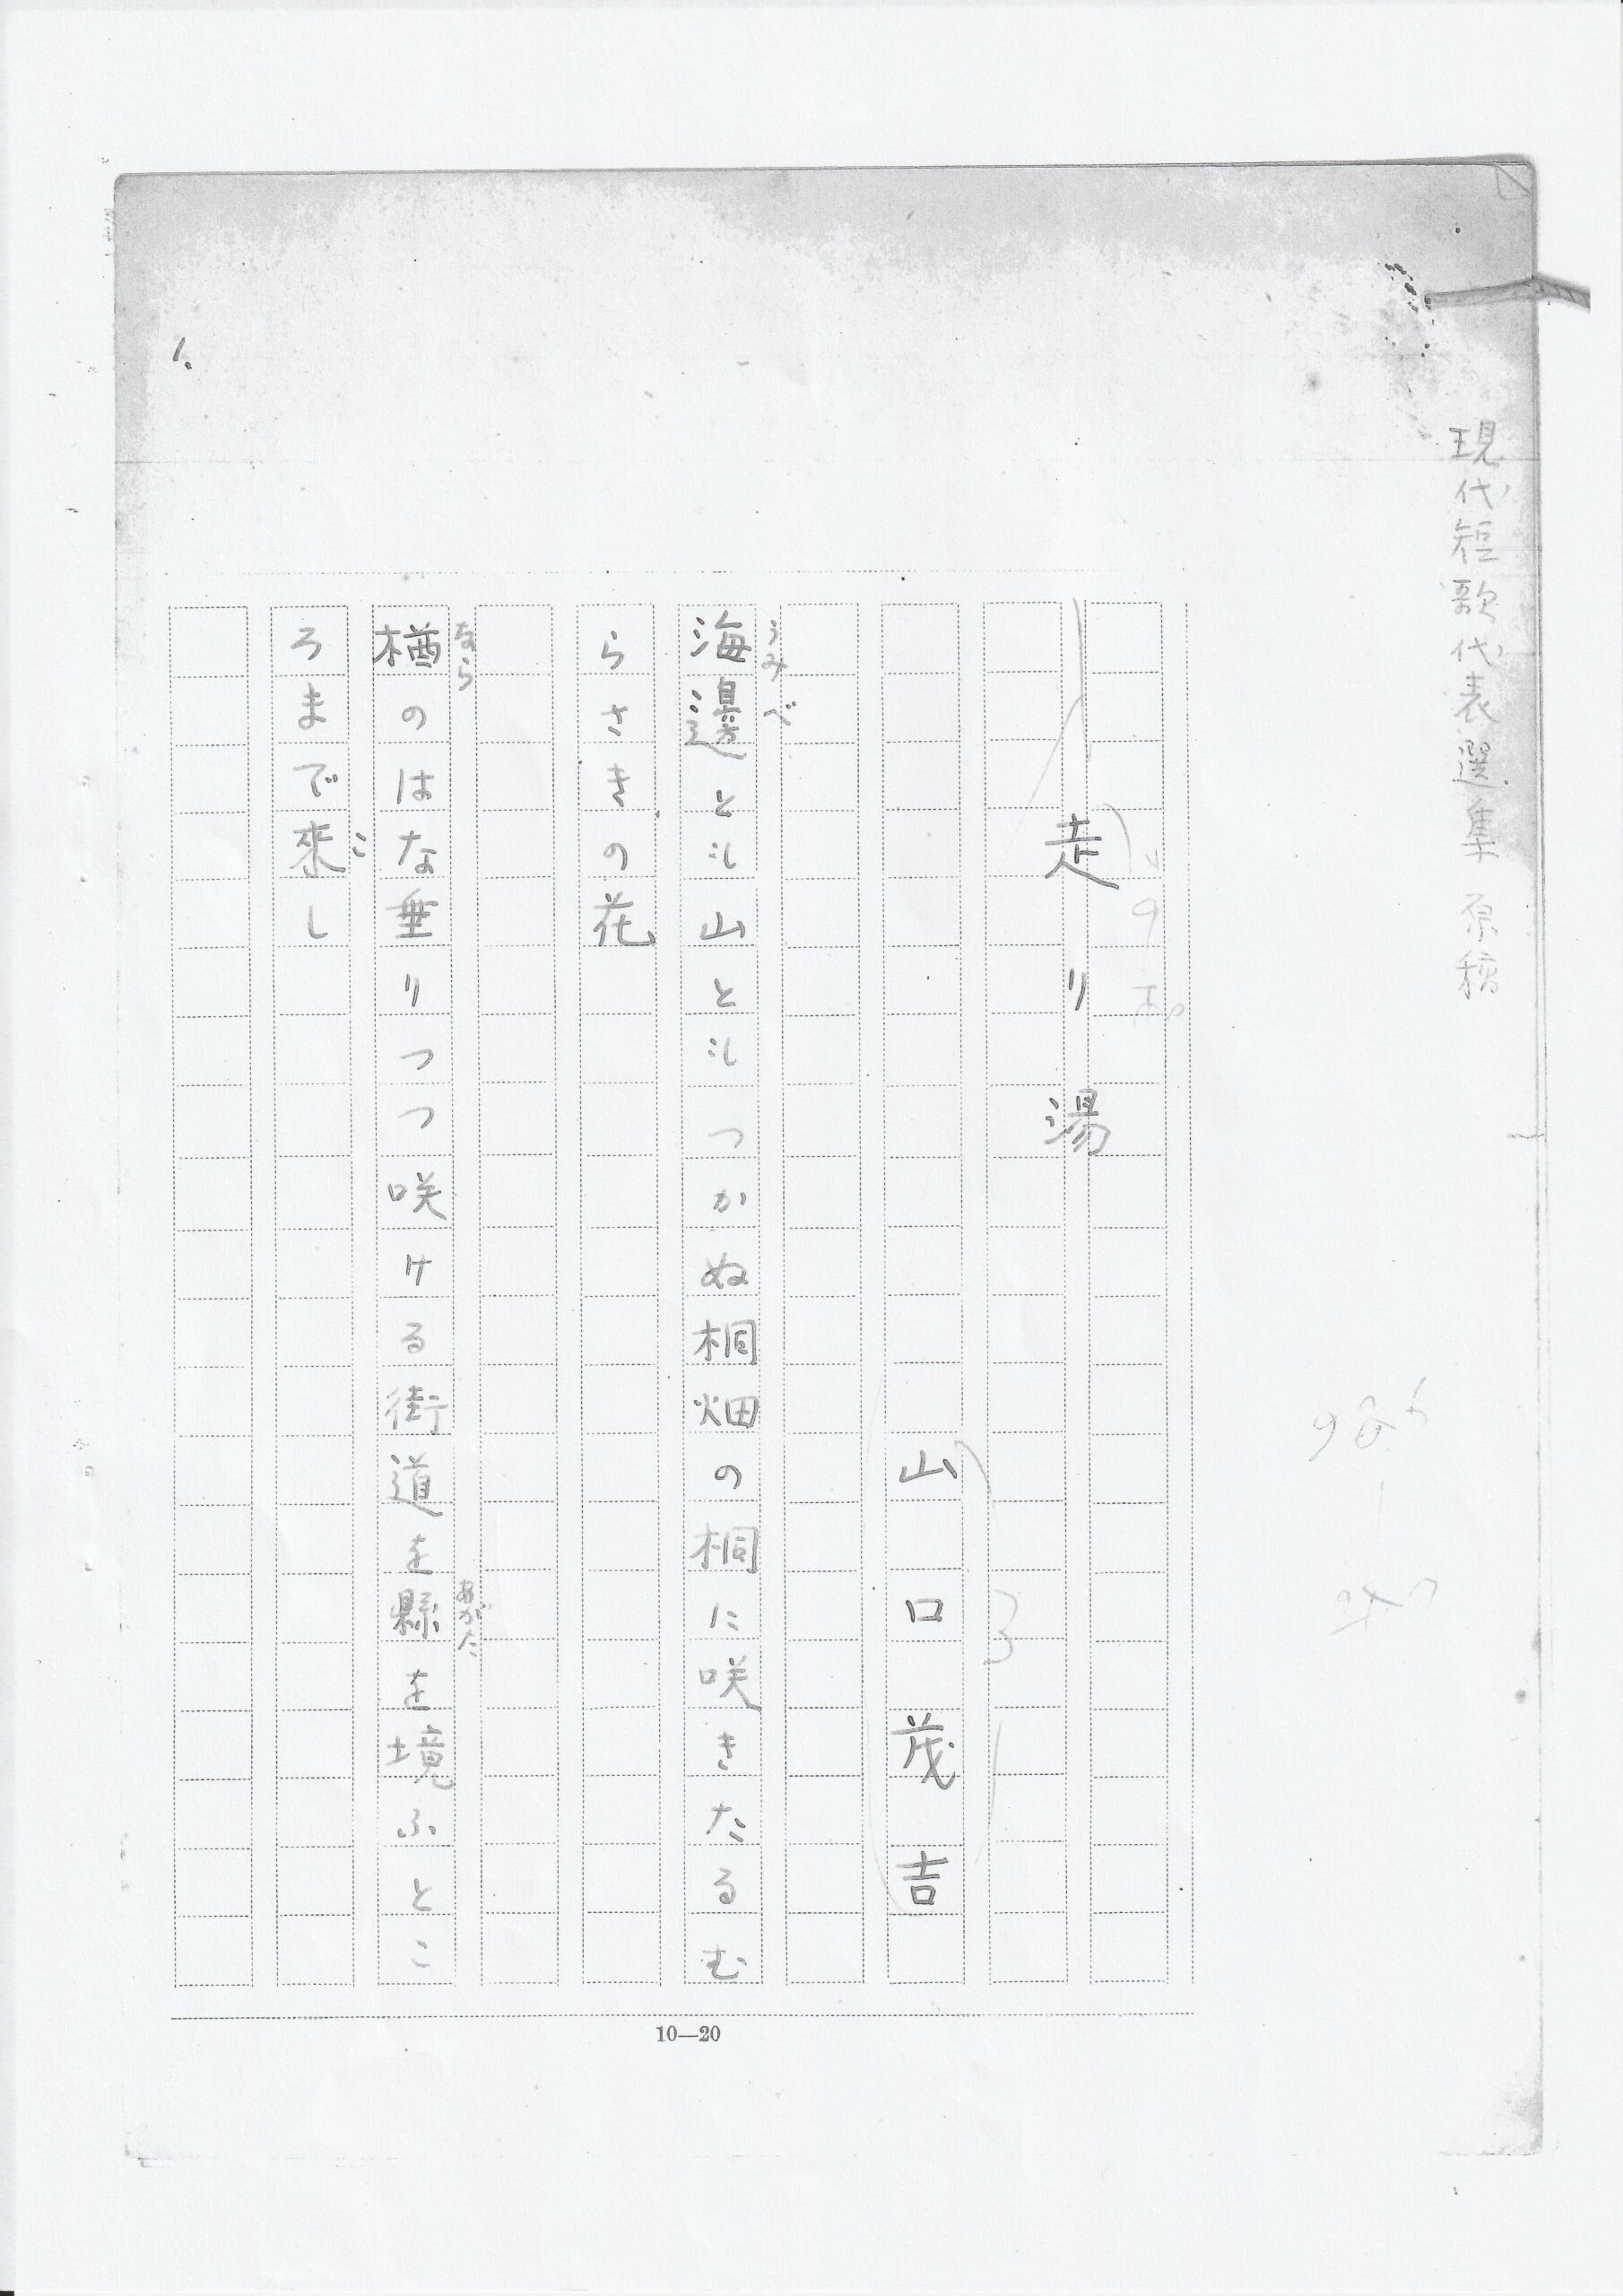 現代短歌代表選集原稿
走り湯
山口茂吉
海邊とも山ともつかぬ桐畑の桐に咲きたるむ
うみべ
らさきの花
楢のはな垂りつつ咲ける街道を縣を境ふとこ
なら
あがた
ろまで來し
こ
1.
10—20